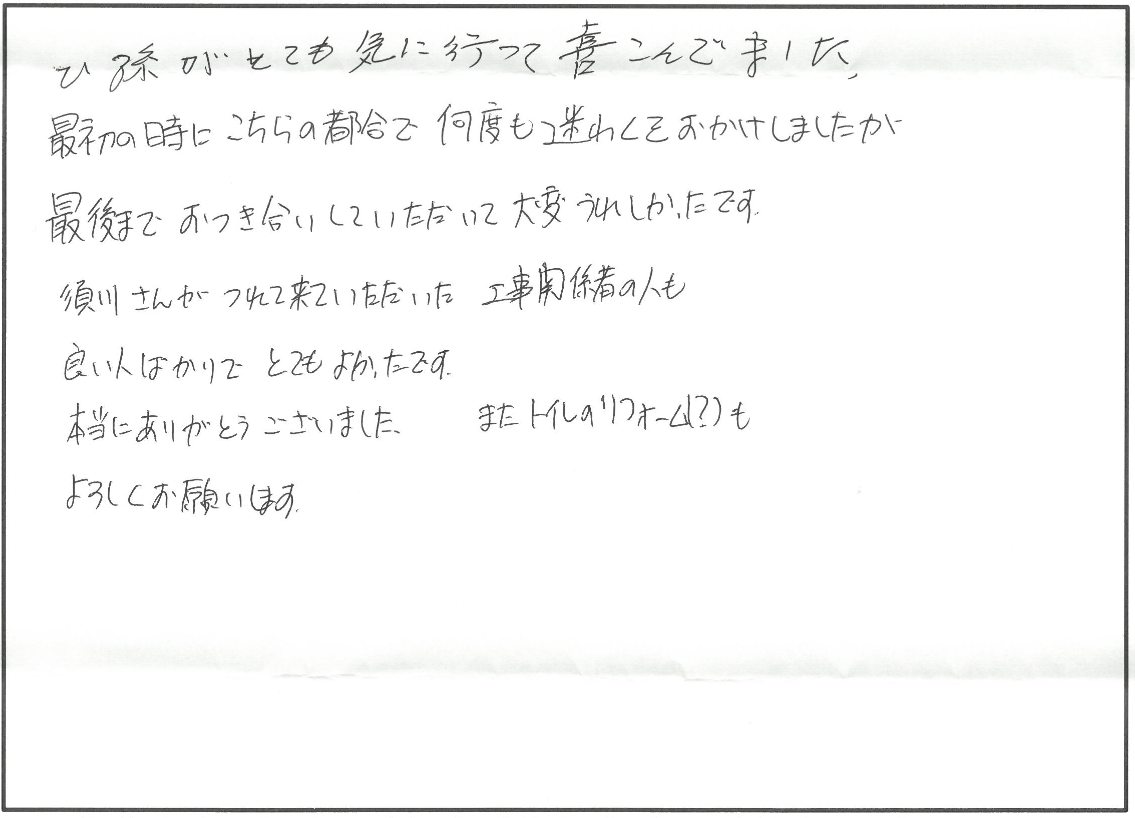 ひ孫がとても気に行って喜こんでました。
最初の時にこちらの都合で何度も迷わくをおかけしましたが
最後までおつき合いしていただいて大変うれしかったです。
須川さんがつれて来ていただいた 工事関係者の人も
良い人ばかりでとてもよかったです。
本当にありがとうございました。 またトイレのリフォーム(?)も
よろしくお願いします。